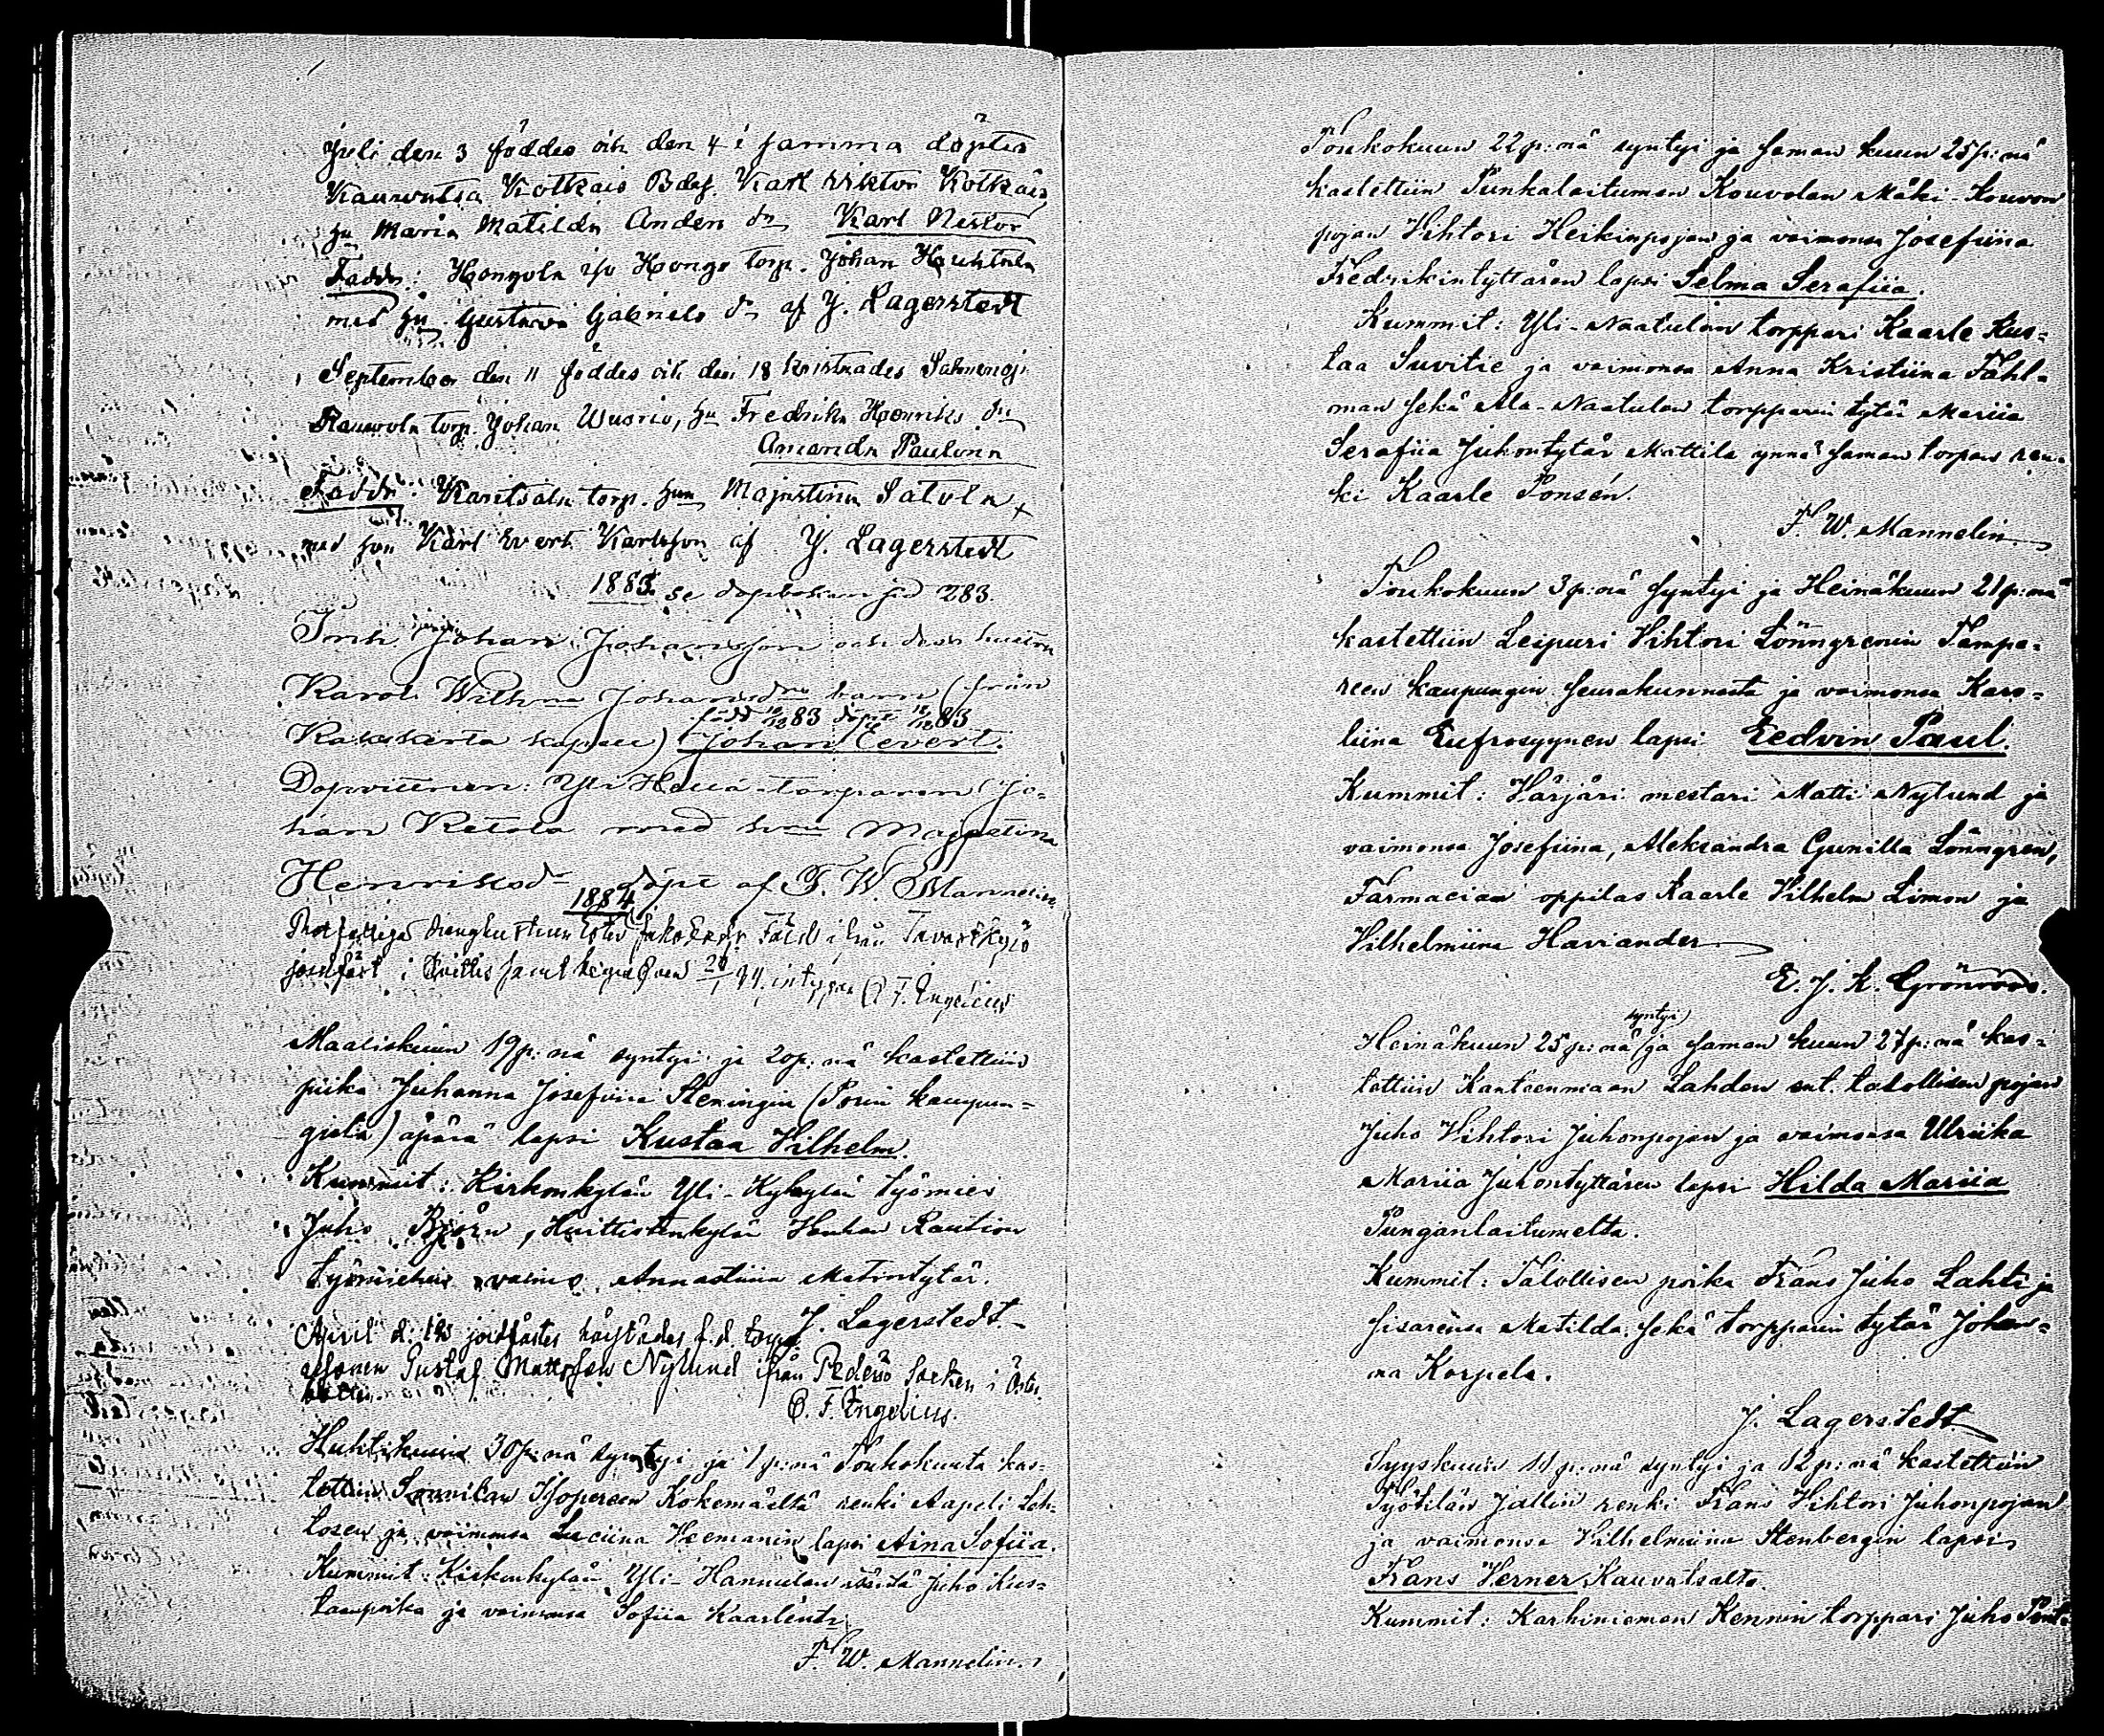 Juli den 3 föddes och den 4 i samma döptes
Kauvatsa Kotkais Bdaf. Karl Viktor Kotkais
hu Maria Matilda Anders dr Karl Nestor
Faddr: Hongola Torp. Johan Huhtala
med hu Gustava Gabriels dr af J. Lagerstedt
September den 11 föddes och den 18 kristnades
torp. Johan Wuorio, hu Fredrika Henriks dr
Amanda Paulina
Faddr: torp. hun Majastina Satula
med son Karl Evert Karlsson af J. Lagerstedt
1883. se dopboken sid 283.
Inh. Johan Johansson och dess hustru
Karol. Wilhna Johansdrs barn (från
född 10/12 83 döpt 12/12 83
kapell) Johan Eevert.
Dopvittnen: Yli Heiiä-torparen Jo-
han Ketola med hu Majastina
Henriksdr döpt af F. W. Mannelin
1884
från Tavastkyrö
jordfäst i C. F. Ingelius
Maaliskuun 19 p:nä syntyi ja 20 p:nä kastettiin
piika Juhanna Josefiina Steningin (Porin kaupun=
gista) äpärä lapsi Kustaa Vilhelm.
Kummit: Kirkonkylän Yli-Kyhylän työmies
Juho Björn, Huittistenkylän Hanhan Raution
työmiehen vaimo Annastiina Matintytär.
J. Lagerstedt
April d. jordfästes f.d. torpp.
sonen Gustaf Mattsson Nylund från Pedersö Socken i Öster
botten.
C. F. Ingelius.
Huhtikuun 30 p:nä syntyi ja 1 p:nä Toukokuuta kas-
tettiin Sonnilan Kokemäeltä renki Aapeli Leh-
tosen ja vaimonsa Luciina Heemanin lapsi Aina Sofiia.
Kummit: Kirkonkylän Yli-Hannulan isäntä Juho Kus=
taanpoika ja vaimonsa Sofiia Kaarlentr
F. W. Mannelin.
Toukokuun 22 p:nä syntyi ja saman kuun 25 p:nä
kastettiin Punkalaitumen Kouvolan Mäki-Kouvon
pojan Vihtori Heikinpojan ja vaimonsa Josefiina
Fredrikintyttären lapsi Selma Serafiia.
Kummit: Yli-Naatulan torppari Kaarle Kus=
taa Suvitie ja vaimonsa Anna Kristiina Fahl=
man sekä Ala-Naatulan torpparin tytär Mariia
Serafiia Juhontytär Mattila ynnä saman torpan ren=
ki Kaarle Ponsén.
F. W. Mannelin
Toukokuun 3 p:nä syntyi ja Heinäkuun 21 p:nä
kastettiin Leipuri Vihtori Lönngrenin Tampe=
reen kaupungin seurakunnasta ja vaimonsa Karo=
liina Eufrosyynen lapsi Eedvin Paul.
Kummit: Värjäri mestari Matti Nylund ja
vaimonsa Josefiina, Aleksandra Gunilla Lönngren,
Farmacian oppilas Kaarle Vilhelm Limon ja
Vilhelmiina Haviander
E. J. K. Grönroos.
syntyi
Heinäkuun 25 p:nä ja saman kuun 27 p:nä kas=
tettiin Kanteenmaan Lahden ent. talollisen pojan
Juho Vihtori Juhonpojan ja vaimonsa Ulriika
Mariia Juhontyttären lapsi Hilda Mariia
Punganlaitumelta.
Kummit: Talollisen poika Frans Juho Lahti ja
sisarensa Matilda sekä torpparin tytär Johan=
na Korpela.
J. Lagerstedt
Syyskuun 11 p:nä syntyi ja 12 p:nä kastettiin
Työtilän Jallin renki Frans Vihtori Juhonpojan
ja vaimonsa Vilhelmiina Stenbergin lapsi
Frans Verner Kauvatsalta.
Kummit: Karhiniemen Kennin torppari Juho